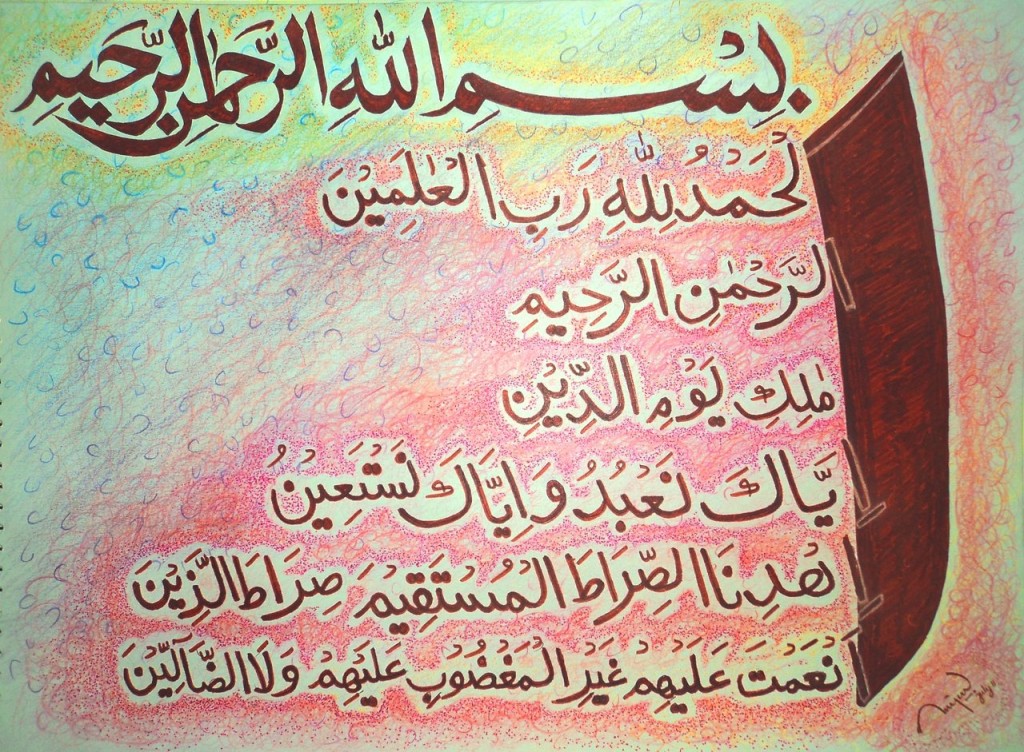 بِسْمِ اللّٰهِ الرَّحْمٰنِ الرَّحِيْمِ
اَلْحَمْدُ لِلّٰهِ رَبِ الْعٰلَمِيْنَ
الرَّحْمٰنِ الرَّحِيْمِ
مٰلِكِ يَوْمِ الدِّيْنِ
اِيَّاكَ نَعْبُدُ وَ اِيَّاكَ نَسْتَعِيْنُ
اِهْدِنَا الصِّرَاطَ الْمُسْتَقِيْمَ صِرَاطَ الَّذِيْنَ
اَنْعَمْتَ عَلَيْهِمْ غَيْرِ الْمَغْضُوْبِ عَلَيْهِمْ وَلَا الضَّآلِّيْنَ